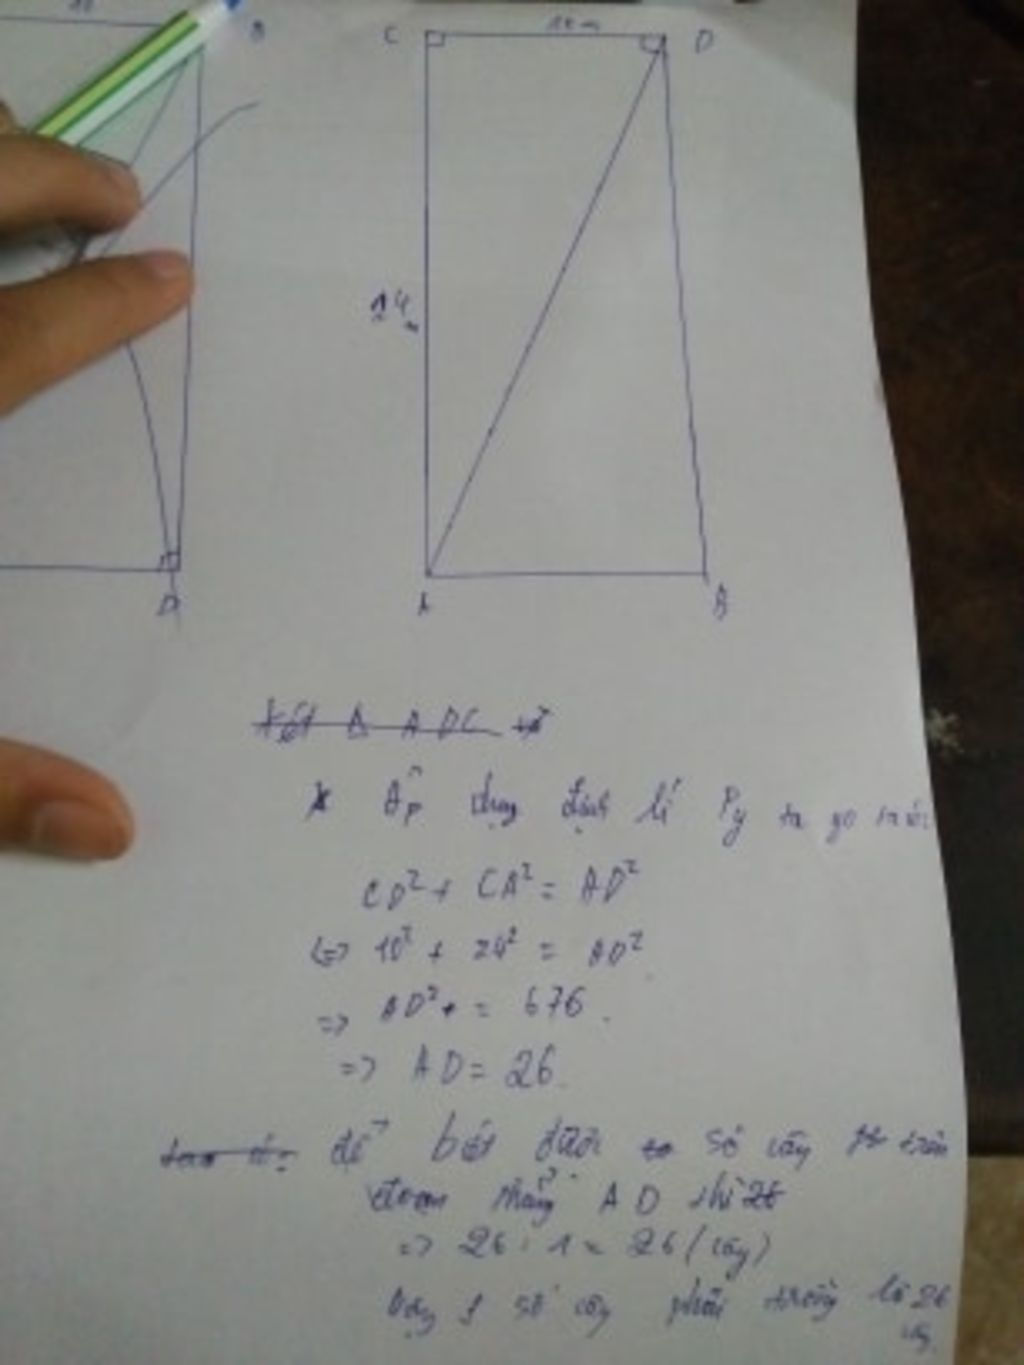 B
C
10m
D
24
m
D
A
B
Xét Δ ADC
Áp dụng định lí Py ta go
CD² + CA² = AD²
<=> 10² + 24² = AD²
=> AD² = 676.
=> AD = 26.
để biết được số cây trên
đoạn thẳng AD thì 26
=> 26 : 1 = 26 (cây)
Vậy số cây phải trồng là 26
cây